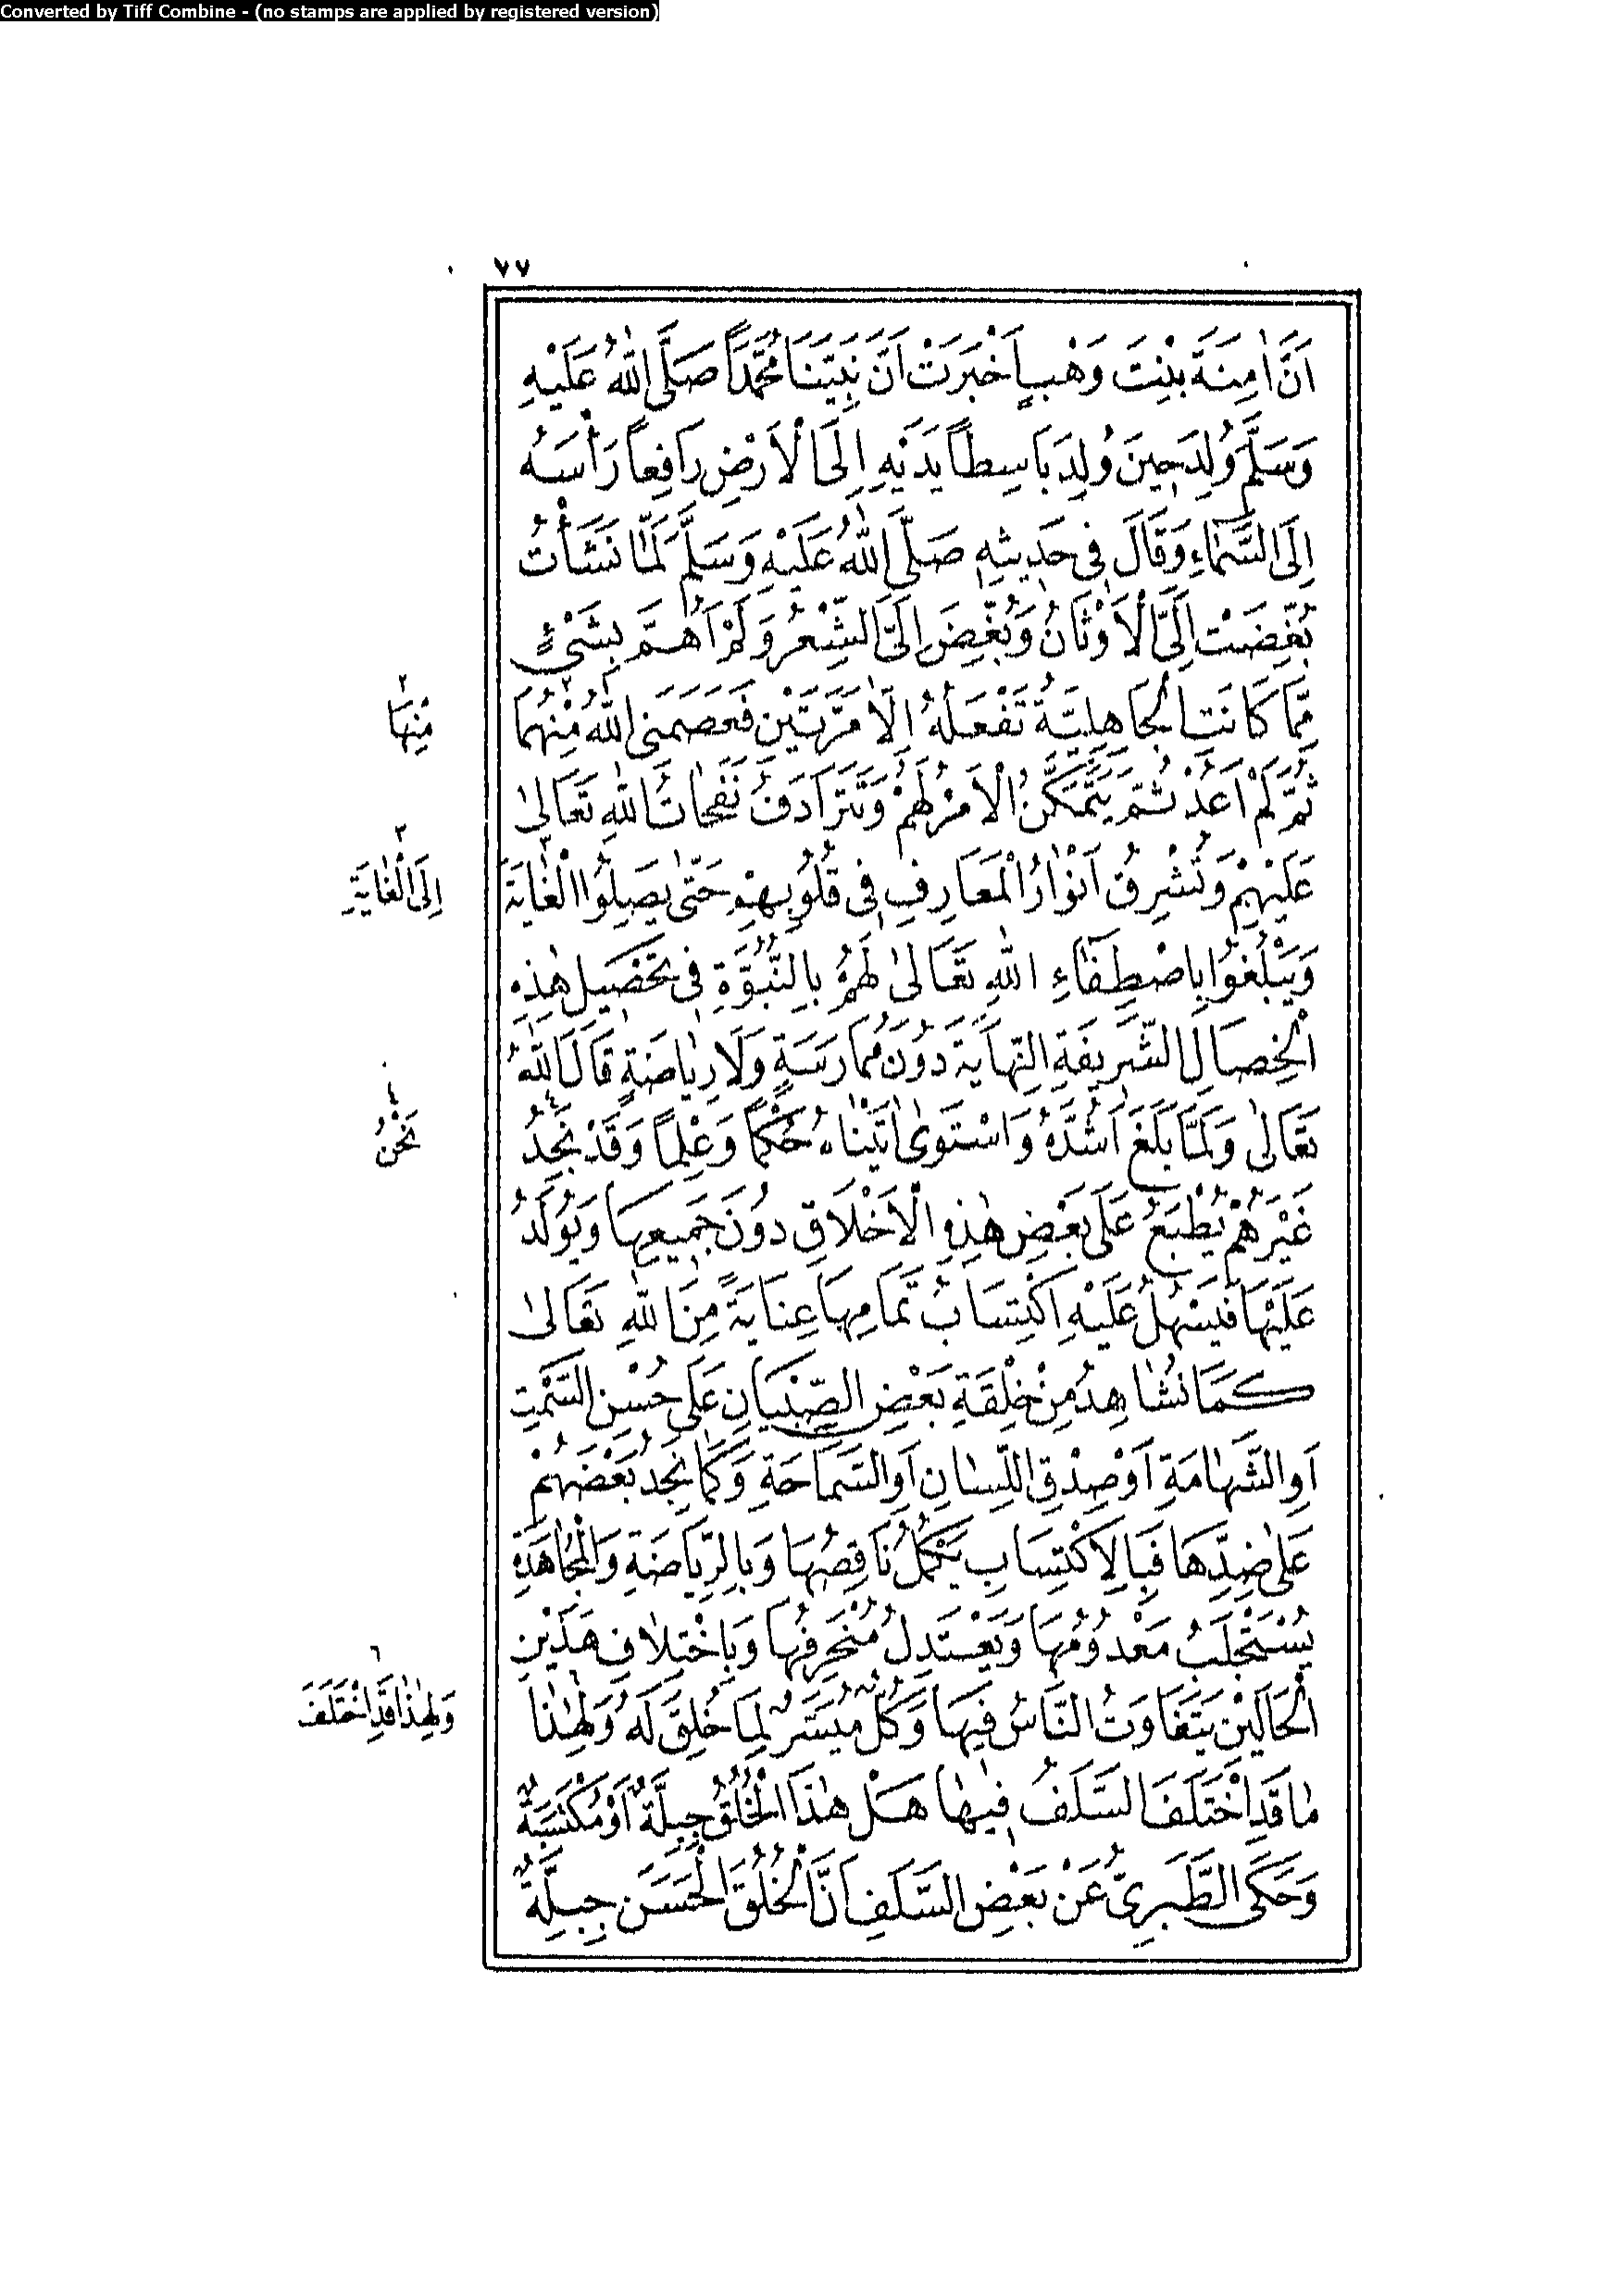 Converted by Tiff Combine - (no stamps are applied by registered version)
٧٧
اَنَّ اٰمِنَةَ بِنْتَ وَهْبٍ اَخْبَرَتْ اَنَّ نَبِيَّنَا مُحَمَّدًا صَلَّى اللّٰهُ عَلَيْهِ
وَسَلَّمَ وُلِدَ حِينَ وُلِدَ بَاسِطًا يَدَيْهِ اِلَى الْاَرْضِ رَافِعًا رَأْسَهُ
اِلَى السَّمَاءِ وَقَالَ فِي حَدِيثِهِ صَلَّى اللّٰهُ عَلَيْهِ وَسَلَّمَ لَمَّا نَشَأْتُ
بُغِّضَتْ اِلَيَّ الْاَوْثَانُ وَبُغِّضَ اِلَيَّ الشِّعْرُ وَلَمْ اَهُمَّ بِشَيْءٍ
مِمَّا كَانَتِ الْجَاهِلِيَّةُ تَفْعَلُهُ اِلَّا مَرَّتَيْنِ فَعَصَمَنِي اللّٰهُ مِنْهُمَا
ثُمَّ لَمْ اَعُدْ ثُمَّ يَتَمَكَّنُ الْاَمْرُ لَهُمْ وَتَتَرَادَفُ نَفَحَاتُ اللّٰهِ تَعَالٰى
عَلَيْهِمْ وَتُشْرِقُ اَنْوَارُ الْمَعَارِفِ فِي قُلُوبِهِمْ حَتّٰى يَصِلُوا الْغَايَةَ
وَيَبْلُغُوا بِاصْطِفَاءِ اللّٰهِ تَعَالٰى لَهُمْ بِالنُّبُوَّةِ فِي تَحْصِيلِ هٰذِهِ
الْخِصَالِ الشَّرِيفَةِ النِّهَايَةَ دُونَ مُمَارَسَةٍ وَلَا رِيَاضَةٍ قَالَ اللّٰهُ
تَعَالٰى وَلَمَّا بَلَغَ اَشُدَّهُ وَاسْتَوٰى اٰتَيْنَاهُ حُكْمًا وَعِلْمًا وَقَدْ نَجِدُ
غَيْرَهُمْ يُطْبَعُ عَلٰى بَعْضِ هٰذِهِ الْاَخْلَاقِ دُونَ جَمِيعِهَا وَيُولَدُ
عَلَيْهَا فَيَسْهُلُ عَلَيْهِ اكْتِسَابُ تَمَامِهَا عِنَايَةً مِنَ اللّٰهِ تَعَالٰى
كَمَا نُشَاهِدُ مِنْ خِلْقَةِ بَعْضِ الصِّبْيَانِ عَلٰى حُسْنِ السَّمْتِ
اَوِ الشَّهَامَةِ اَوْ صِدْقِ اللِّسَانِ اَوِ السَّمَاحَةِ وَكَمَا نَجِدُ بَعْضَهُمْ
عَلٰى ضِدِّهَا فَبِالِاكْتِسَابِ يَكْمُلُ نَاقِصُهَا وَبِالرِّيَاضَةِ وَالْمُجَاهَدَةِ
يُسْتَجْلَبُ مَعْدُومُهَا وَيَعْتَدِلُ مُنْحَرِفُهَا وَبِاخْتِلَافِ هٰذَيْنِ
الْحَالَيْنِ يَتَفَاوَتُ النَّاسُ فِيهَا وَكُلٌّ مُيَسَّرٌ لِمَا خُلِقَ لَهُ وَلِهٰذَا
مَا قَدِ اخْتَلَفَ السَّلَفُ فِيهَا هَلْ هٰذَا الْخُلُقُ جِبِلَّةٌ اَوْ مُكْتَسَبَةٌ
وَحَكَى الطَّبَرِيُّ عَنْ بَعْضِ السَّلَفِ اَنَّ الْخُلُقَ الْحَسَنَ جِبِلَّةٌ
٢
مِنْهَا
٣
اِلَى الْغَايَةِ
٤
نَحْنُ
٦
وَلِهٰذَا قَدِ اخْتَلَفَ